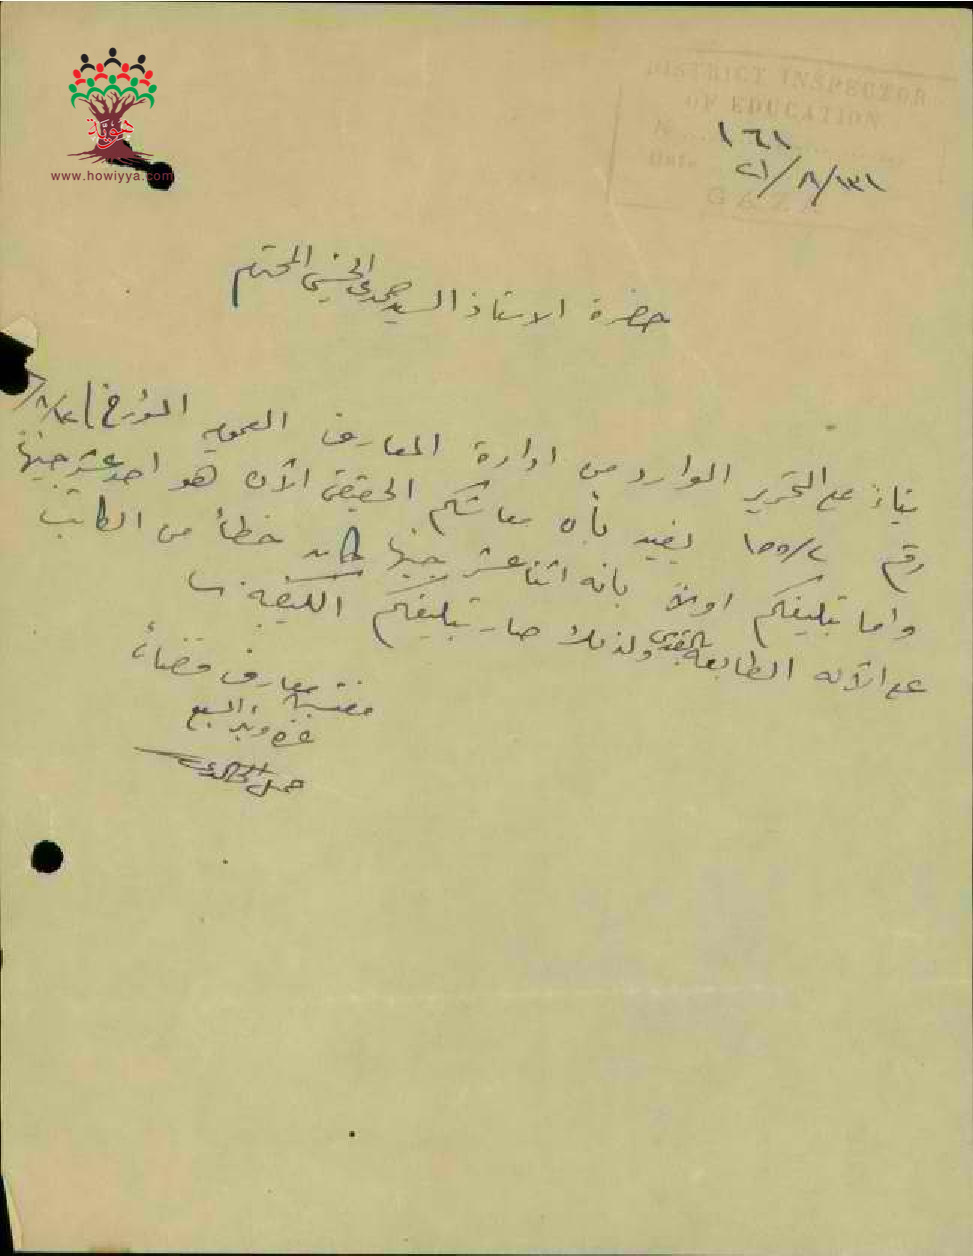 هوية
www.howiyya.com
DISTRICT INSPECTOR
OF EDUCATION
N
Date
GAZA
١٦١
٢١/٨/
حضرة الاستاذ السيد حمدي الحسيني المحترم
بناءً على التحرير الوارد من ادارة المعارف العموميه المؤرخ
رقم ١٥٥/٢ يفيد بأن معاشكم الحقيقي الآن هو احد عشر جنيهاً
واما تبليغكم اولاً بانه اثنا عشر جنيهاً كان خطأ من الكاتب
على الآله الطابعه بالقدس ولذلك صار تبليغكم الكيفيه
مفتش معارف قضاء
غزه وبئر السبع
الخالدي